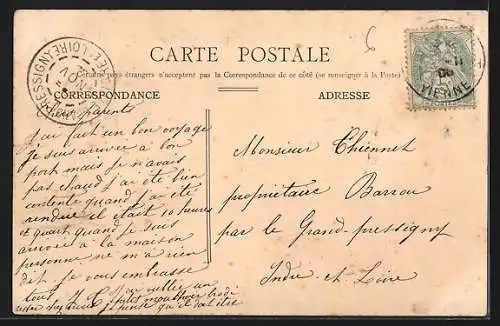 CARTE POSTALE
Certains pays étrangers n'acceptent pas la Correspondance de ce côté (se renseigner à la Poste)
CORRESPONDANCE
ADRESSE
6
PRESSIGNY
VIENNE
Chers parents
J'ai fait un bon voyage
je suis arriver a bon
port mais je n'avais
pas chaud j'ai été bien
contente quand j'ai été
rendue il était 10 heures
et quart quand je suis
arrivée à la maison
personne ne m'a rien
dit. Je vous embrasse
tous
J'ai oublier un
mouchoir brodé
je pense qu'il doit être
Monsieur Thiennet
propriétaire Barrou
par le Grand-pressigny
Indre-et-Loire